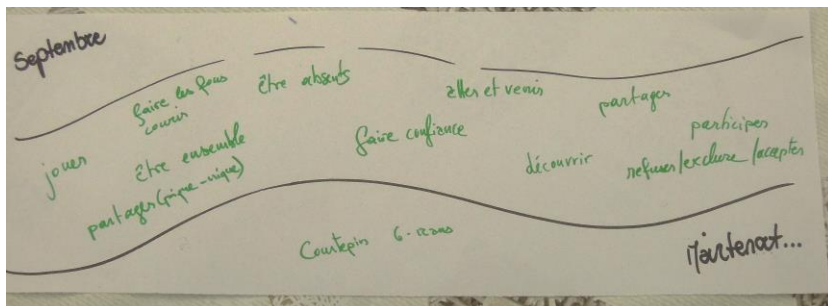 Septembre
faire les fous
courir
être absents
aller et venir
partager
jouer
être ensemble
partager (pique-nique)
faire confiance
découvrir
participer
refuser/exclure/accepter
Courtepin 6-12ans
Maintenant...